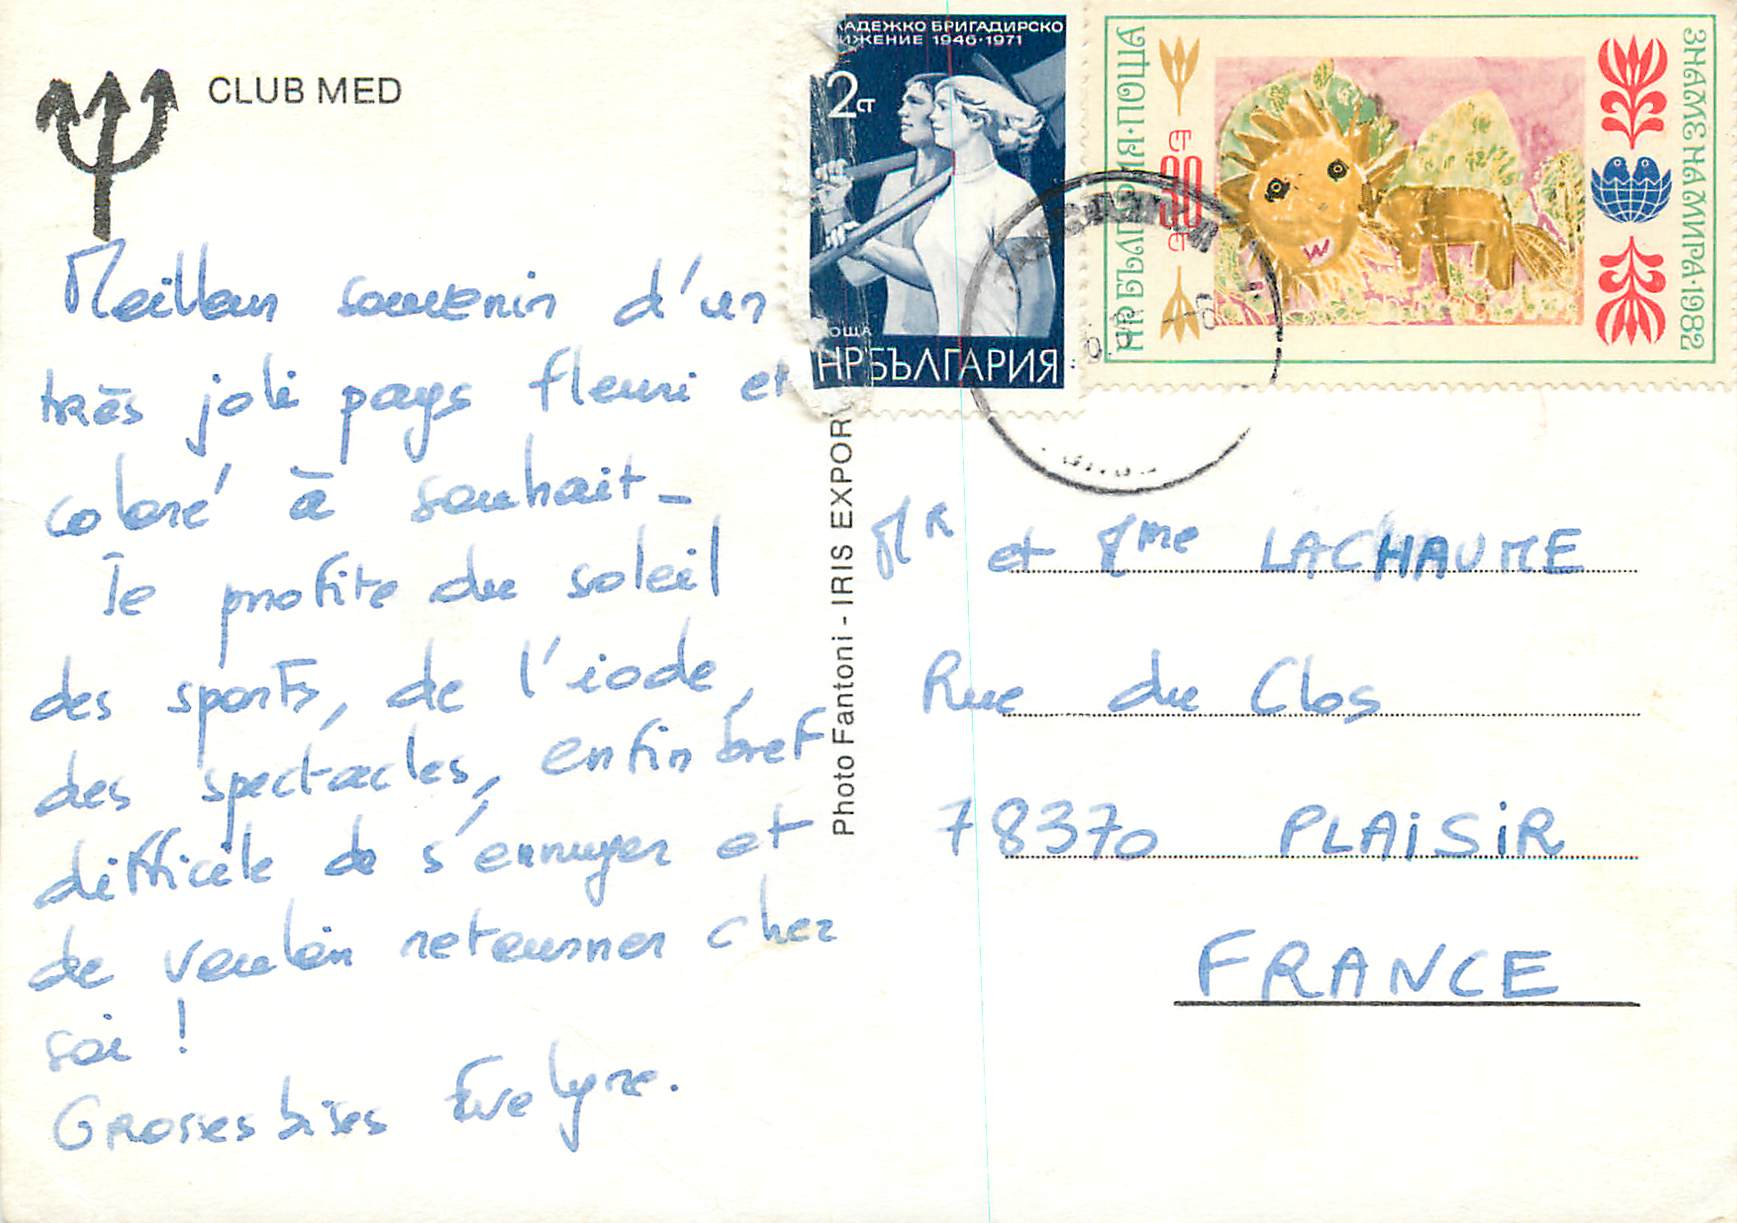 CLUB MED
Meilleur souvenir d'un
très joli pays fleuri et
coloré à souhait -
Je profite du soleil
des sports, de l'iode,
des spectacles, enfin bref
difficile de s'ennuyer et
de vouloir retourner chez
soi !
Grosses bises Evelyne.
Photo Fantoni - IRIS EXPOR
АДЕЖКО БРИГАДИРСКО
ИЖЕНИЕ 1946·1971
2 СТ
ОЩА
НР БЪЛГАРИЯ
НР БЪЛГАРИЯ·ПОЩА
30 СТ
ЗНАМЕ НА МИРА·1982
Mr et Mme LACHAUME
Rue du Clos
78370 PLAISIR
FRANCE